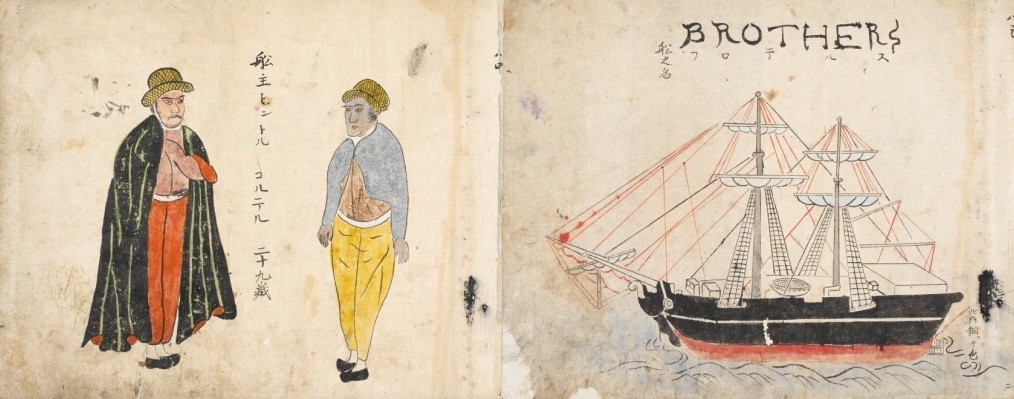 船主ヒントル コルテル 二十九歳
BROTHERS
フロテルス
船之名
此所銅ノ色